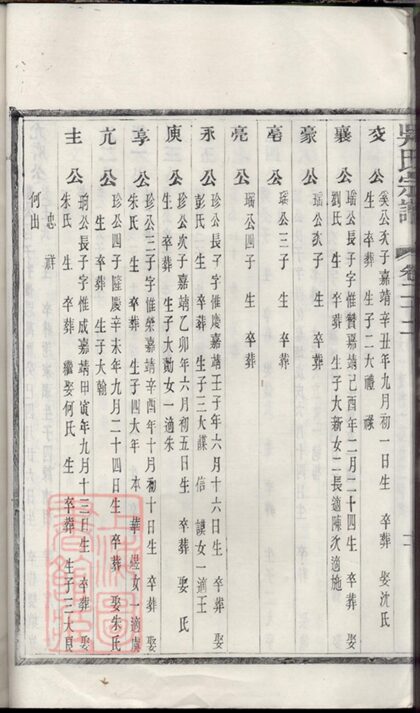 吳氏宗譜 卷二十二
交公 奚公次子嘉靖辛丑年九月初一日生 卒葬 娶沈氏
生 卒葬 生子二大禮 祿
襄公 瑶公長子字惟贊嘉靖己酉年二月二十四生 卒葬 娶
劉氏 生 卒葬 生子大新女二長適陳次適施
豪公 瑶公次子 生 卒葬
亳公 瑶公三子 生 卒葬
亮公 瑶公四子 生 卒葬
永公 珍公長子字惟慶嘉靖壬子年六月十六日生 卒葬 娶
彭氏 生 卒葬 生子三大謀 信 謨女一適王
庚公 珍公次子嘉靖乙卯年六月初五日生 卒葬 娶 氏
生 卒葬 生子大勛女一適朱
享公 珍公三子字惟榮嘉靖辛酉年十月初十日生 卒葬 娶
朱氏 生 卒葬 生子四大年 本 華 女一適虞
亢公 珍公四子隆慶辛未年九月二十四日生 卒葬 娶朱氏
生 卒葬 生子大翰
主公 珣公長子字惟成嘉靖甲寅年九月十三日生 卒葬 娶
朱氏 生 卒葬 繼娶何氏 生 卒葬 生子三大良
忠 祥
何出